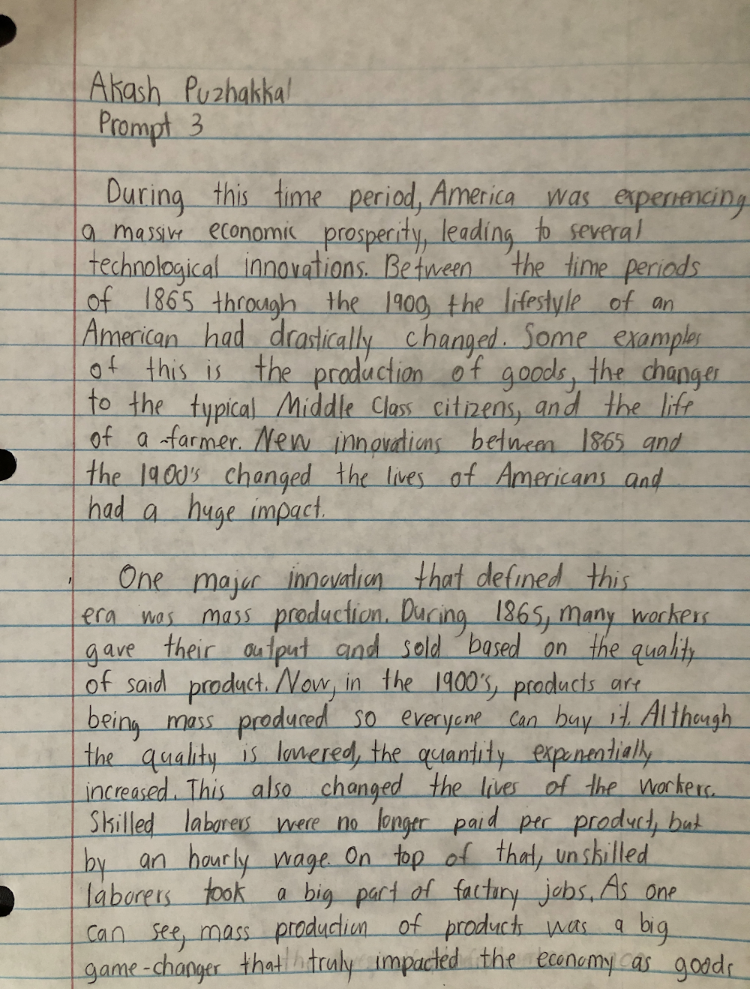 Akash Puzhakkal
Prompt 3
During this time period, America was experiencing
a massive economic prosperity, leading to several
technological innovations. Between the time periods
of 1865 through the 1900, the lifestyle of an
American had drastically changed. Some examples
of this is the production of goods, the changes
to the typical Middle Class citizens, and the life
of a farmer. New innovations between 1865 and
the 1900's changed the lives of Americans and
had a huge impact.
One major innovation that defined this
era was mass production. During 1865, many workers
gave their output and sold based on the quality
of said product. Now, in the 1900's, products are
being mass produced so everyone can buy it. Although
the quality is lowered, the quantity exponentially
increased. This also changed the lives of the workers.
Skilled laborers were no longer paid per product, but
by an hourly wage. On top of that, unskilled
laborers took a big part of factory jobs. As one
can see, mass production of products was a big
game-changer that truly impacted the economy as goods